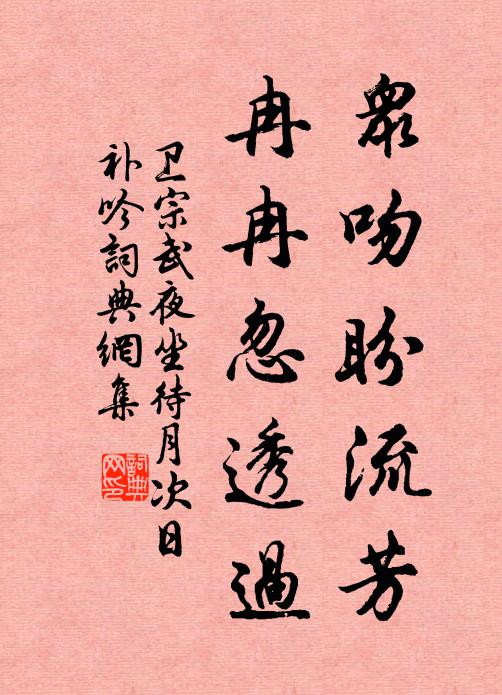 衆吻盼流芳
冉冉忽透過
卫宗武夜坐待月次日
补吟詞典網集
詞典
网印